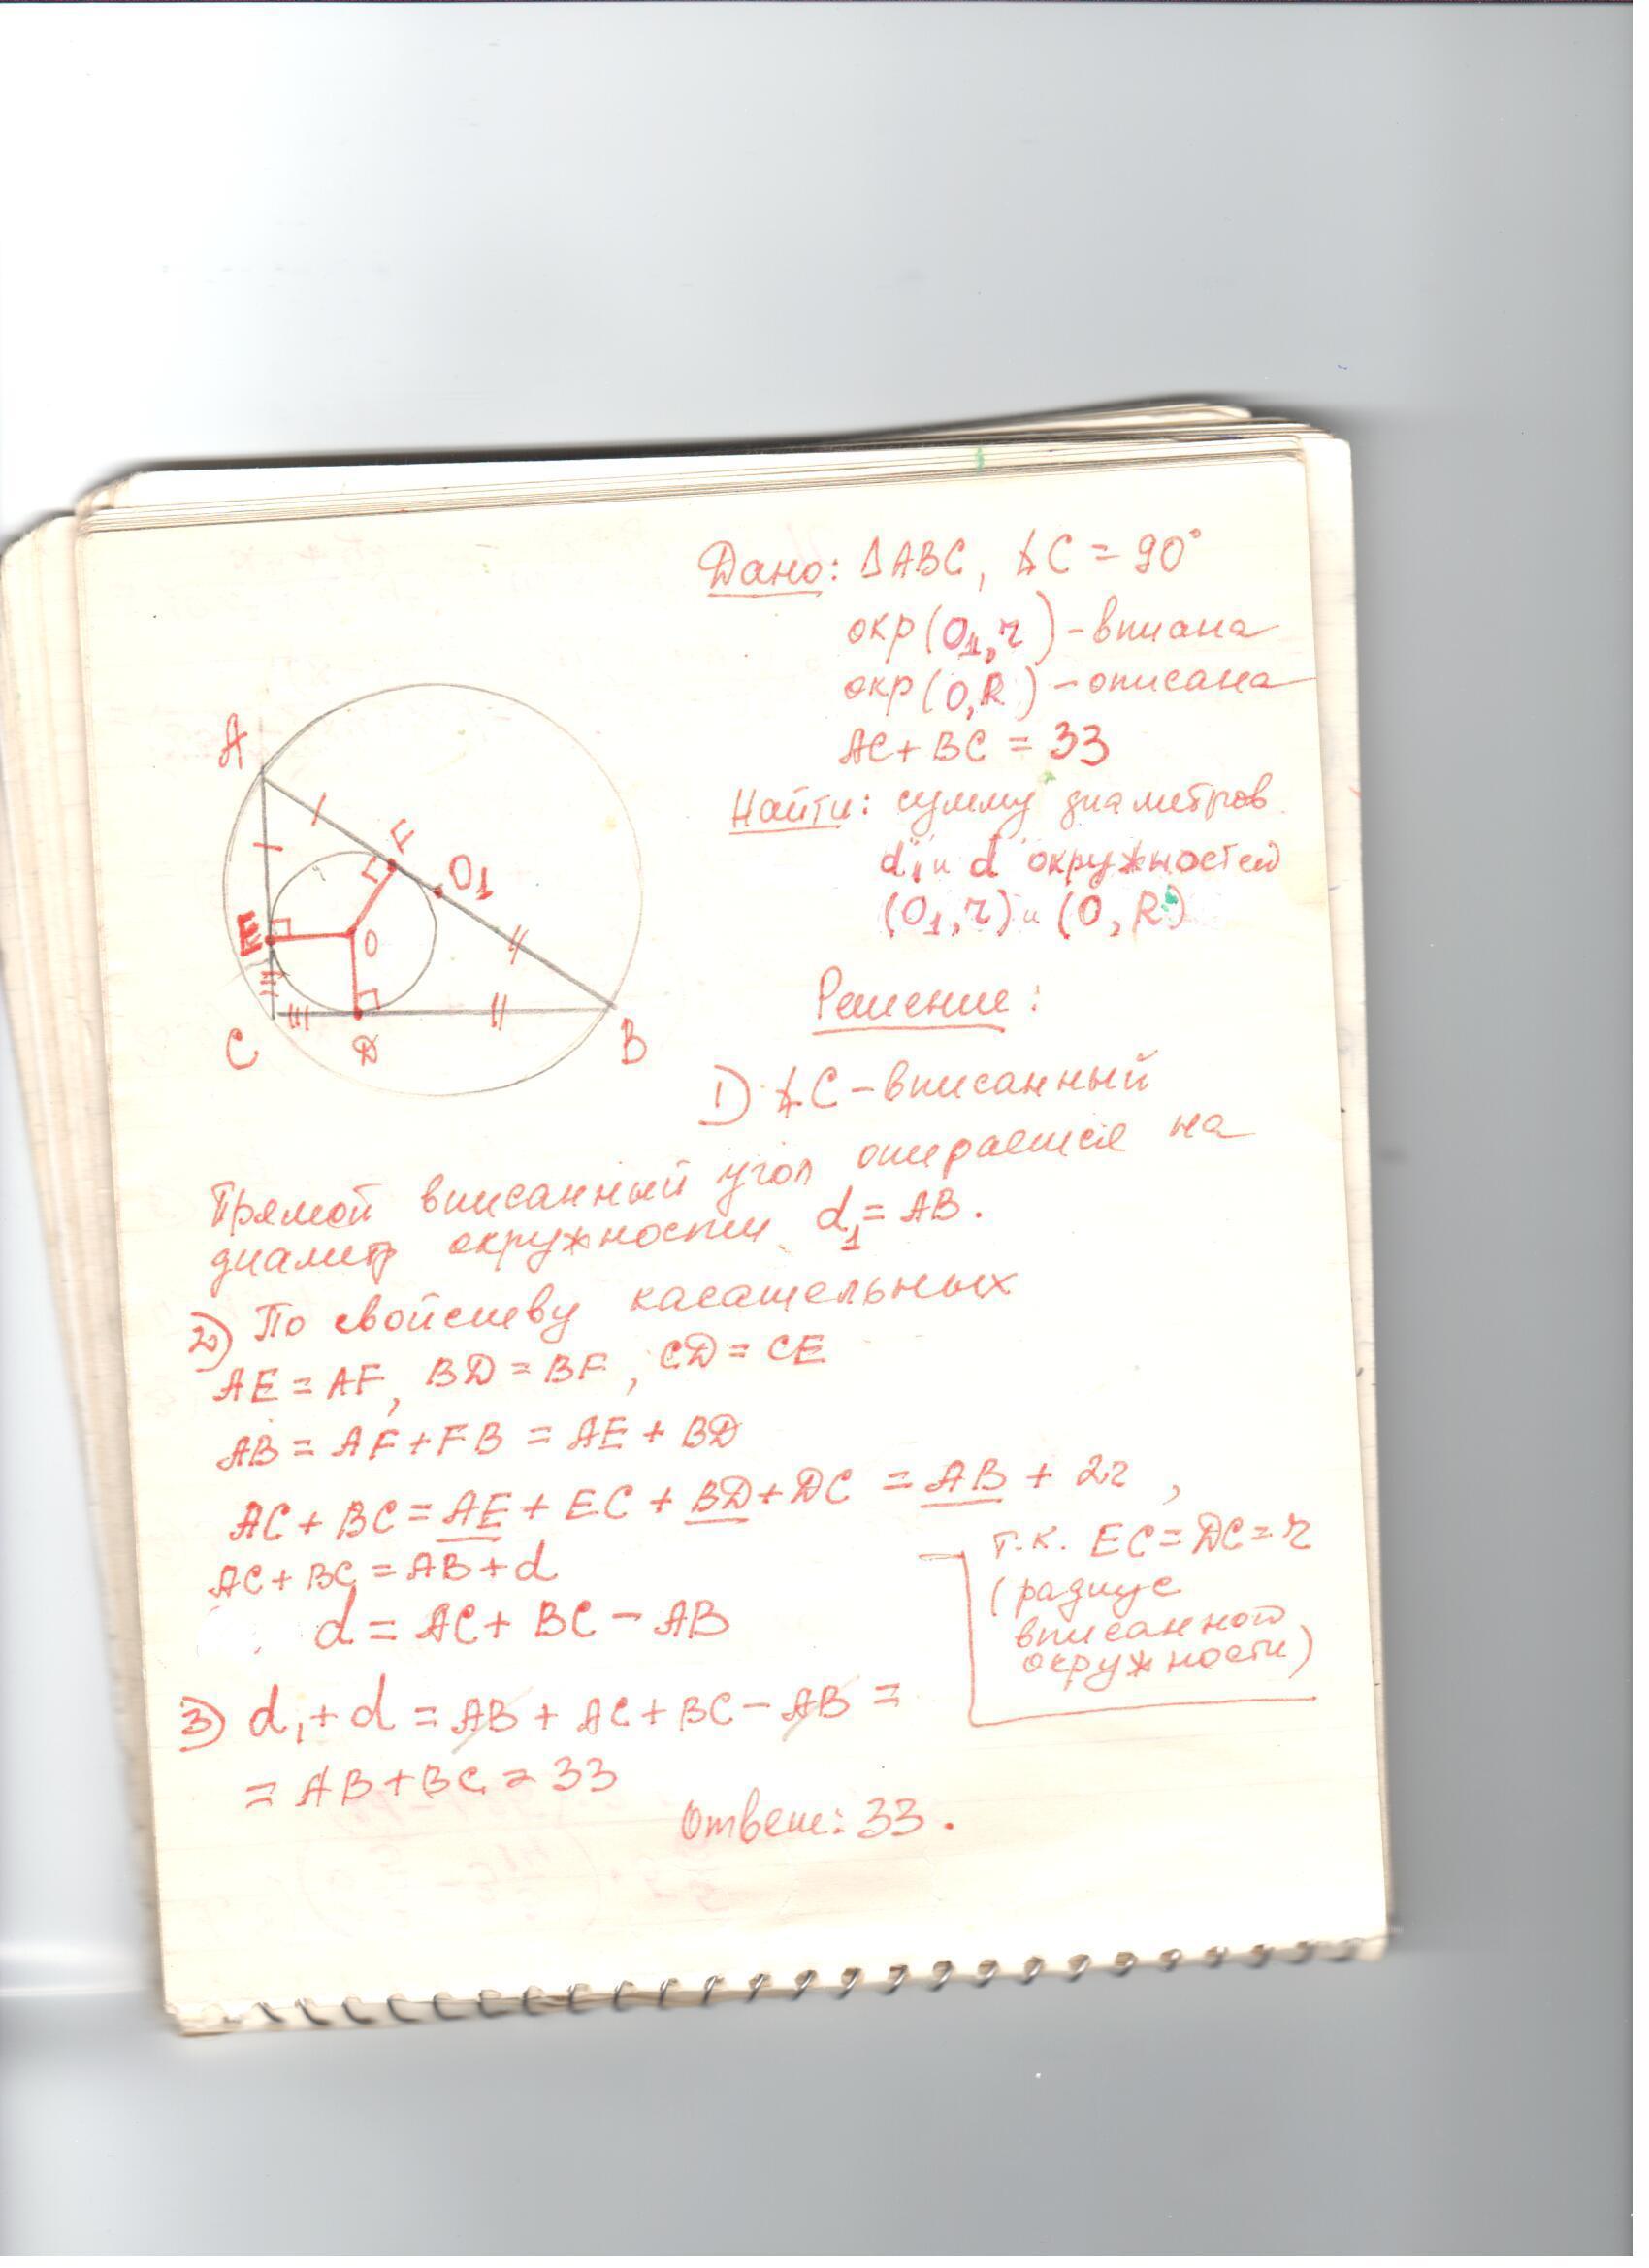 Дано: ΔABC, ∡C = 90°
окр(O₁, r) – вписана
окр(O, R) – описана
AC + BC = 33
Найти: сумму диаметров
d₁ и d окружностей
(O₁, r) и (O, R)
A
F
O₁
E
O
C
D
B
Решение:
1) ∡C – вписанный
Прямой вписанный угол опирается на
диаметр окружности d₁ = AB.
2) По свойству касательных
AE = AF, BD = BF, CD = CE
AB = AF + FB = AE + BD
AC + BC = AE + EC + BD + DC = AB + 2r,
т.к. EC = DC = r
(радиус
вписанной
окружности)
AC + BC = AB + d
d = AC + BC – AB
3) d₁ + d = AB + AC + BC – AB =
= AB + BC = 33
Ответ: 33.